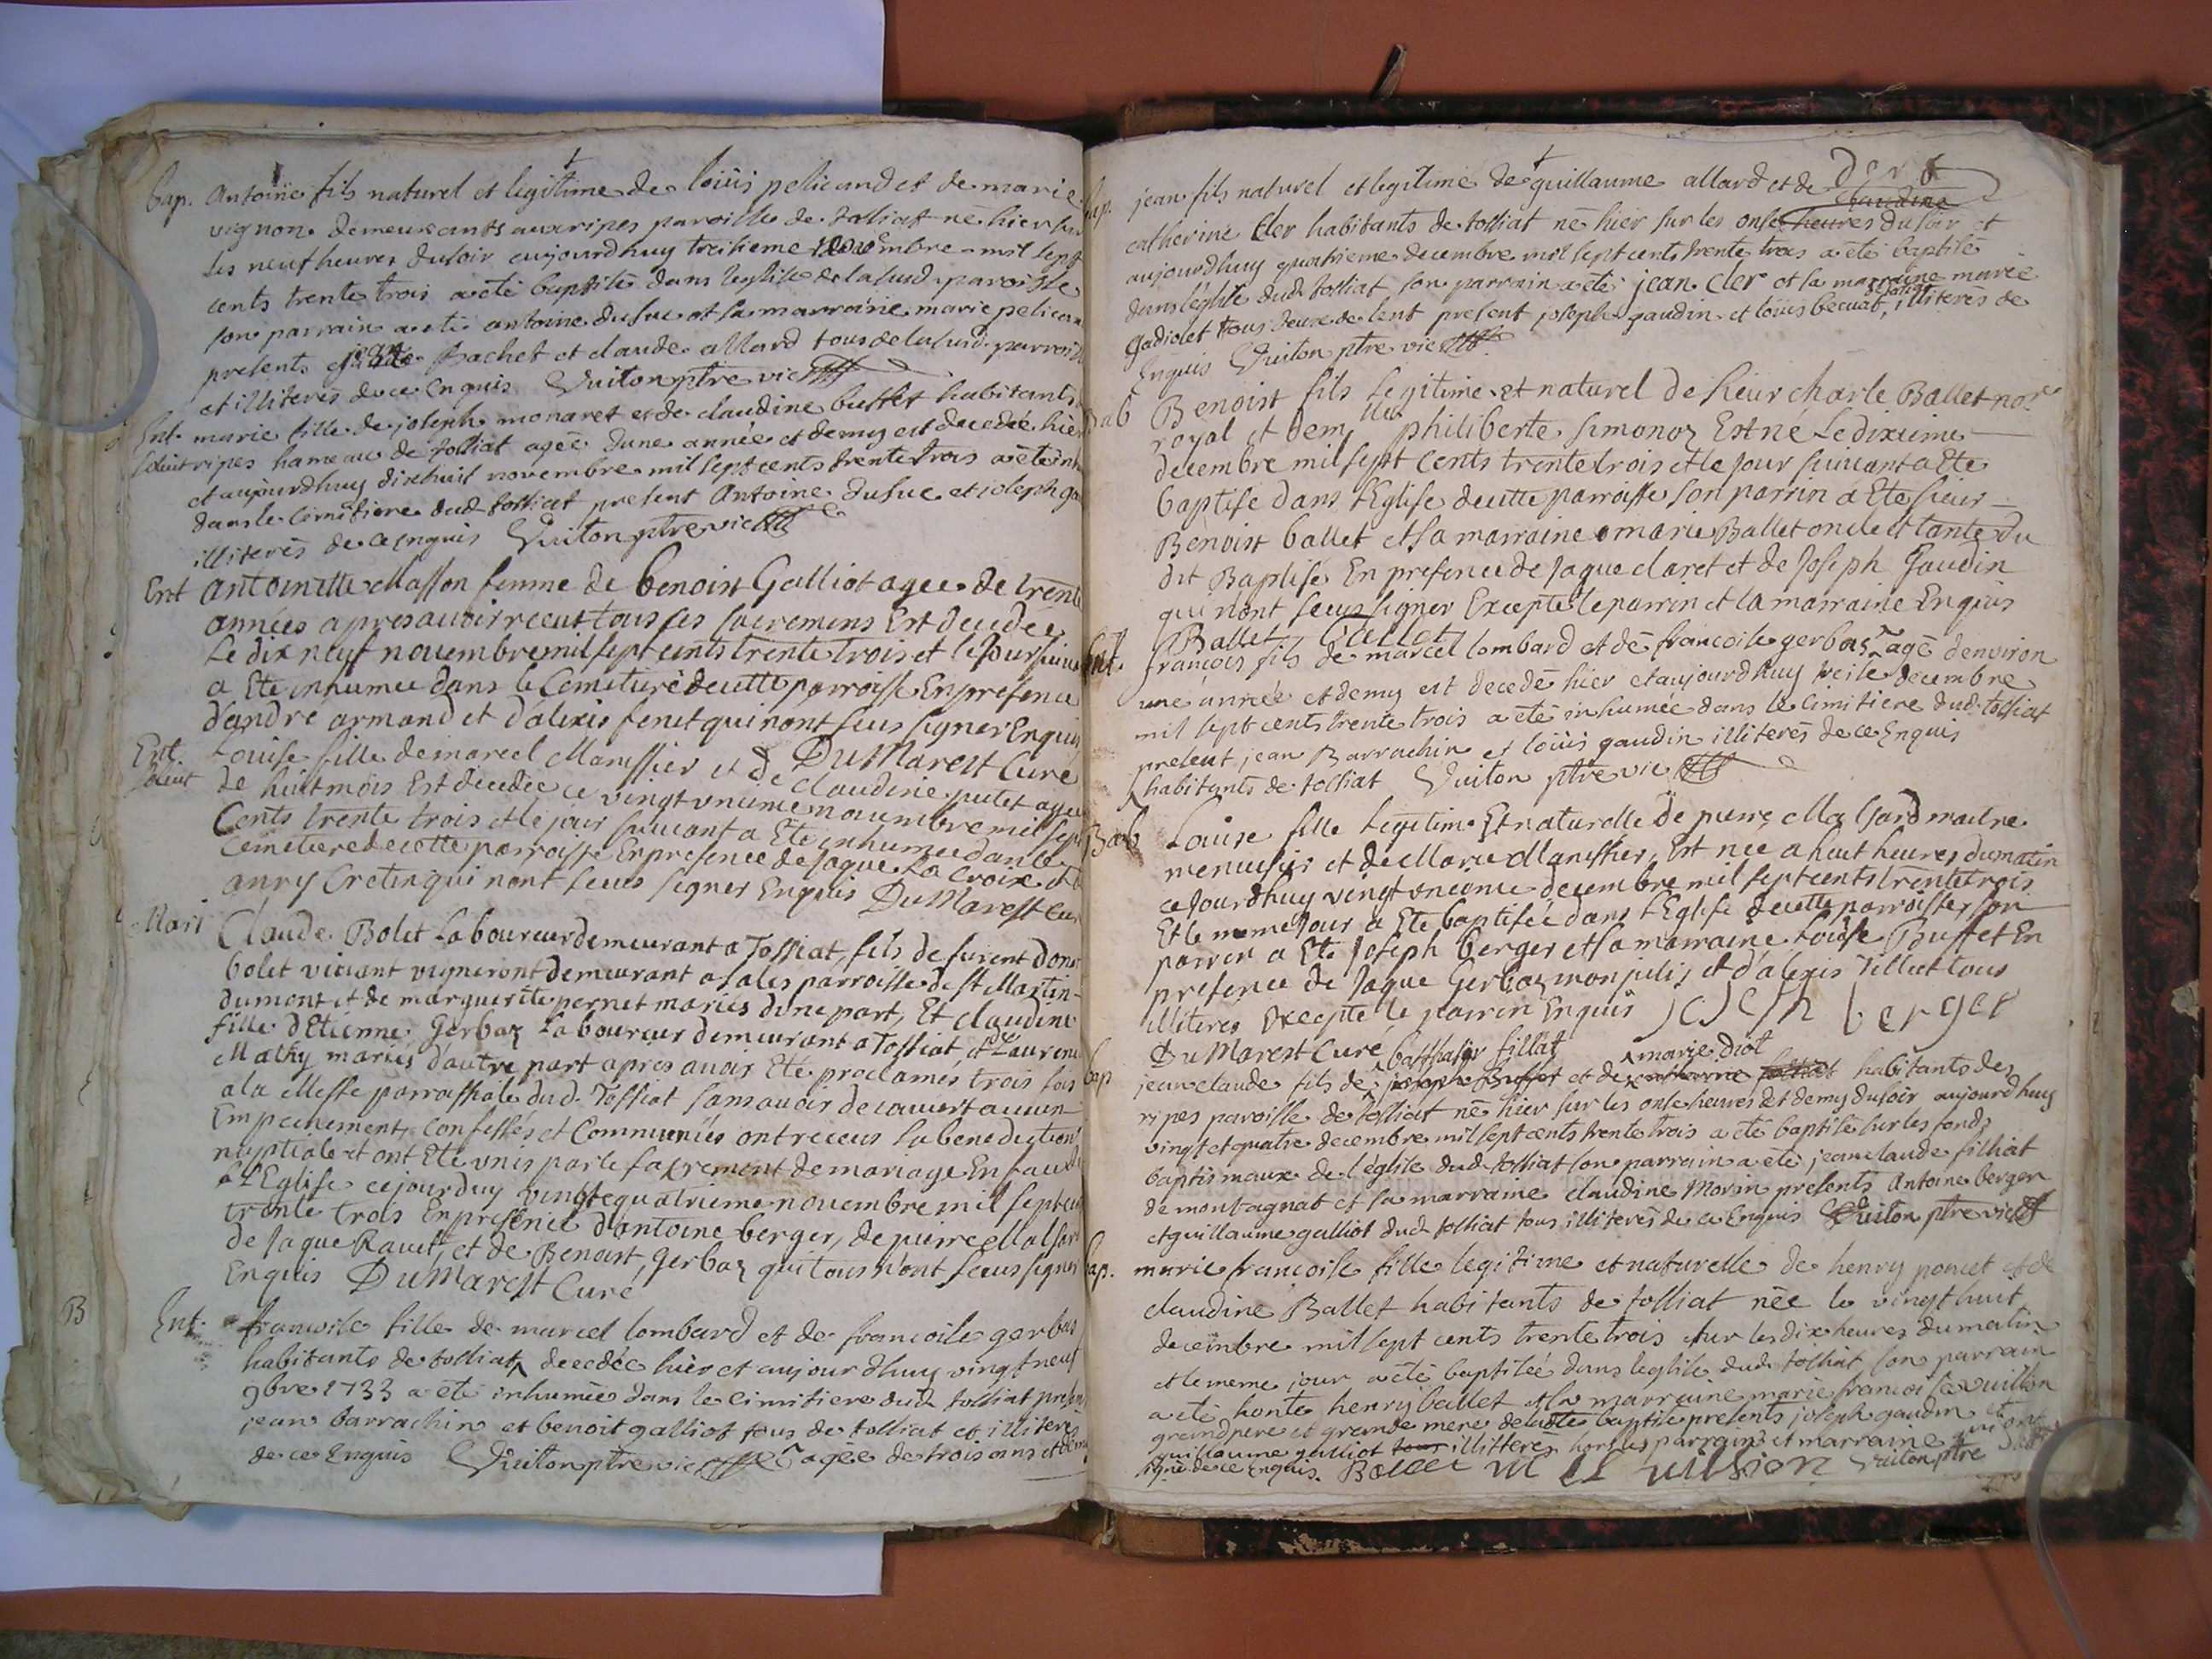 bap. Antoine fils naturel et legitime de loüis pelicand et de marie
vignon demeurants aux ripes paroisse de tossiat né hier sur
les neuf heures du soir aujourdhuy treisieme novembre mil sept
cents trente trois a été baptisé dans leglise de la susd. paroisse
son parrain a été antoine dufuc et sa marraine marie pelican
presents Bachet et claude allard tous de la susd. parroisse
et illiterés de ce Enquis Vuiton ptre vic
Ent. marie fille de joseph monaret et de claudine buffet habitants
ripes hameau de tossiat agée dune année et demy est decedée hier
et aujourdhuy dixhuit novembre mil sept cents trente trois a été inh
dans le cimitiere dud. tossiat present Antoine dufuc et joseph ga
illiterés de ce enquis Vuiton ptre vic
Ent Antoinette Masson femme de benoist Galliot agee de trente
années apres avoir receut tous ses sacremens Est decedée
Le dix neuf novembre mil sept cents trente trois et le jour suiva
a Ete inhumee dans le Cemetiere decette parroisse En presence
d'andré armand et d'alexis fenet qui nont sceus signer Enquis
DuMarest Curé
Ent. Louise fille de marcel Manissier et de claudine putet agee
de huit mois Est decedée ce vingt vnieme novembre mil sept
Cents trente trois et le jour suivant a Ete inhumee dans le
Cemetiere de cette parroisse En presence de Jaque La Croix et d
anry Cretin qui nont sceus signer Enquis DuMarest Cur
Mari Claude Bolet Laboureur demeurant a Tossiat, fils de
bolet vivant vigneront demeurant a sales parroisse de st Martin
dumont et de marguerite pernet mariés dune part, Et claudine
fille d'Etienne Gerbaz Laboureur demeurant a Tossiat, et Laurene
Mathy mariés d'autre part apres avoir Eté proclamés trois fois
a la Messe parroissiale dud. Tossiat sans avoir decouvert aucun
Empechement, confessés et Communiés ont receus la benediction
nuptiale et ont Eté vnis par le sacrement de mariage En face de
L'Eglise cejourduy vingtequatrieme novembre mil sept cen
trente trois En presence d'antoine berger, de pierre Malfard
de Jaque Ravet, et de Benoist, gerbaz qui tous n'ont sceus signer
Enquis DuMarest Curé
B
Ent. francoise fille de marcel lombard et de francoise gerbas
habitants de tossiat decedée hier et aujourdhuy vingt neuf
9bre 1733 a été inhumée dans le cimitiere dud. tossiat presen
jean barrachin et benoit galliot tous de tossiat et illiterés
de ce Enquis Vuiton ptre vic agée de trois ans et demy
bap. jean fils naturel et legitime de guillaume allard et de claudine
catherine Cler habitants de tossiat né hier sur les onse heures du soir et
aujourdhuy quatrieme decembre mil sept cents trente trois a été baptisé
dans léglise dud. tossiat son parrain a été jean Cler et sa marraine marie
gadiolet tous deux de lent present joseph gaudin et loüis becuat, illiterés de
Enquis Vuiton ptre vic
Bab Benoist fils Legitime et naturel de sieur charle Ballet nore
royal et demlle philiberte simonoz Est né Le dixieme
decembre mil sept cents trente trois et le jour suivant a Ete
baptise dans l'Eglise decette parroisse son parrin a Ete sieur
Benoist ballet et sa marraine marie Ballet oncle et tante du
dit Baptisé En presence de Jaque claret et de Joseph Gaudin
qui n'ont sceus signer Excepté le parrin et la marraine Enquis
Ballet Ballet
Ent. francois fils de marcel lombard et de francoise gerbas agé denviron
une année et demy est decedé hier et aujourdhuy treise decembre
mil sept cents trente trois a été inhumée dans le cimitiere dud. tossiat
present jean Barrachin et loüis gaudin illiterés de ce Enquis
habitants de tossiat Vuiton ptre vic
Bab Louise fille Legitime Et naturelle de pierre Malfard maitre
menusier et de Marie Manissier, Est nee a huit heures du matin
cejourdhuy vingt onieme decembre mil sept cents trente trois
Et le meme jour a Ete baptisée dans l'Eglise de cette parroisse, son
parrin a Ete Joseph berger et sa marraine Louise Buffet En
presence de Jaque Gerbaz mon et d'alexis Tillet tous
illiteres Excepte le parrin Enquis joseph berger
DuMarest Curé
bap jean claude fils de balthasar fillat joseph Buffet et de marie diot catherine habitants des
ripes paroisse de tossiat né hier sur les onse heures et demy du soir aujourdhuy
vingt et quatre decembre mil sept cents trente trois a été baptisé sur les fonds
baptismaux de l'église dud. tossiat son parrain a été jean claude filliat
de montagnat et sa marraine claudine Morin presents Antoine berger
et guillaume galliot dud. tossiat tous illiterés de ce Enquis Vuiton ptre vic
bap. marie francoise fille legitime et naturelle de henry poncet et de
claudine Ballet habitants de tossiat née le vingt huit
decembre mil sept cents trente trois sur les dix heures du matin
et le meme jour a été baptiseé dans leglise dud. tossiat son parrain
a été honte henry ballet et la marraine marie francoise vuillon
grand pere et grande mere de baptisé presents joseph gaudin et
guillaume galliot tous illitterés hors les parrain et marraine qui ont
signé de ce Enquis. Ballet Vuiton ptre